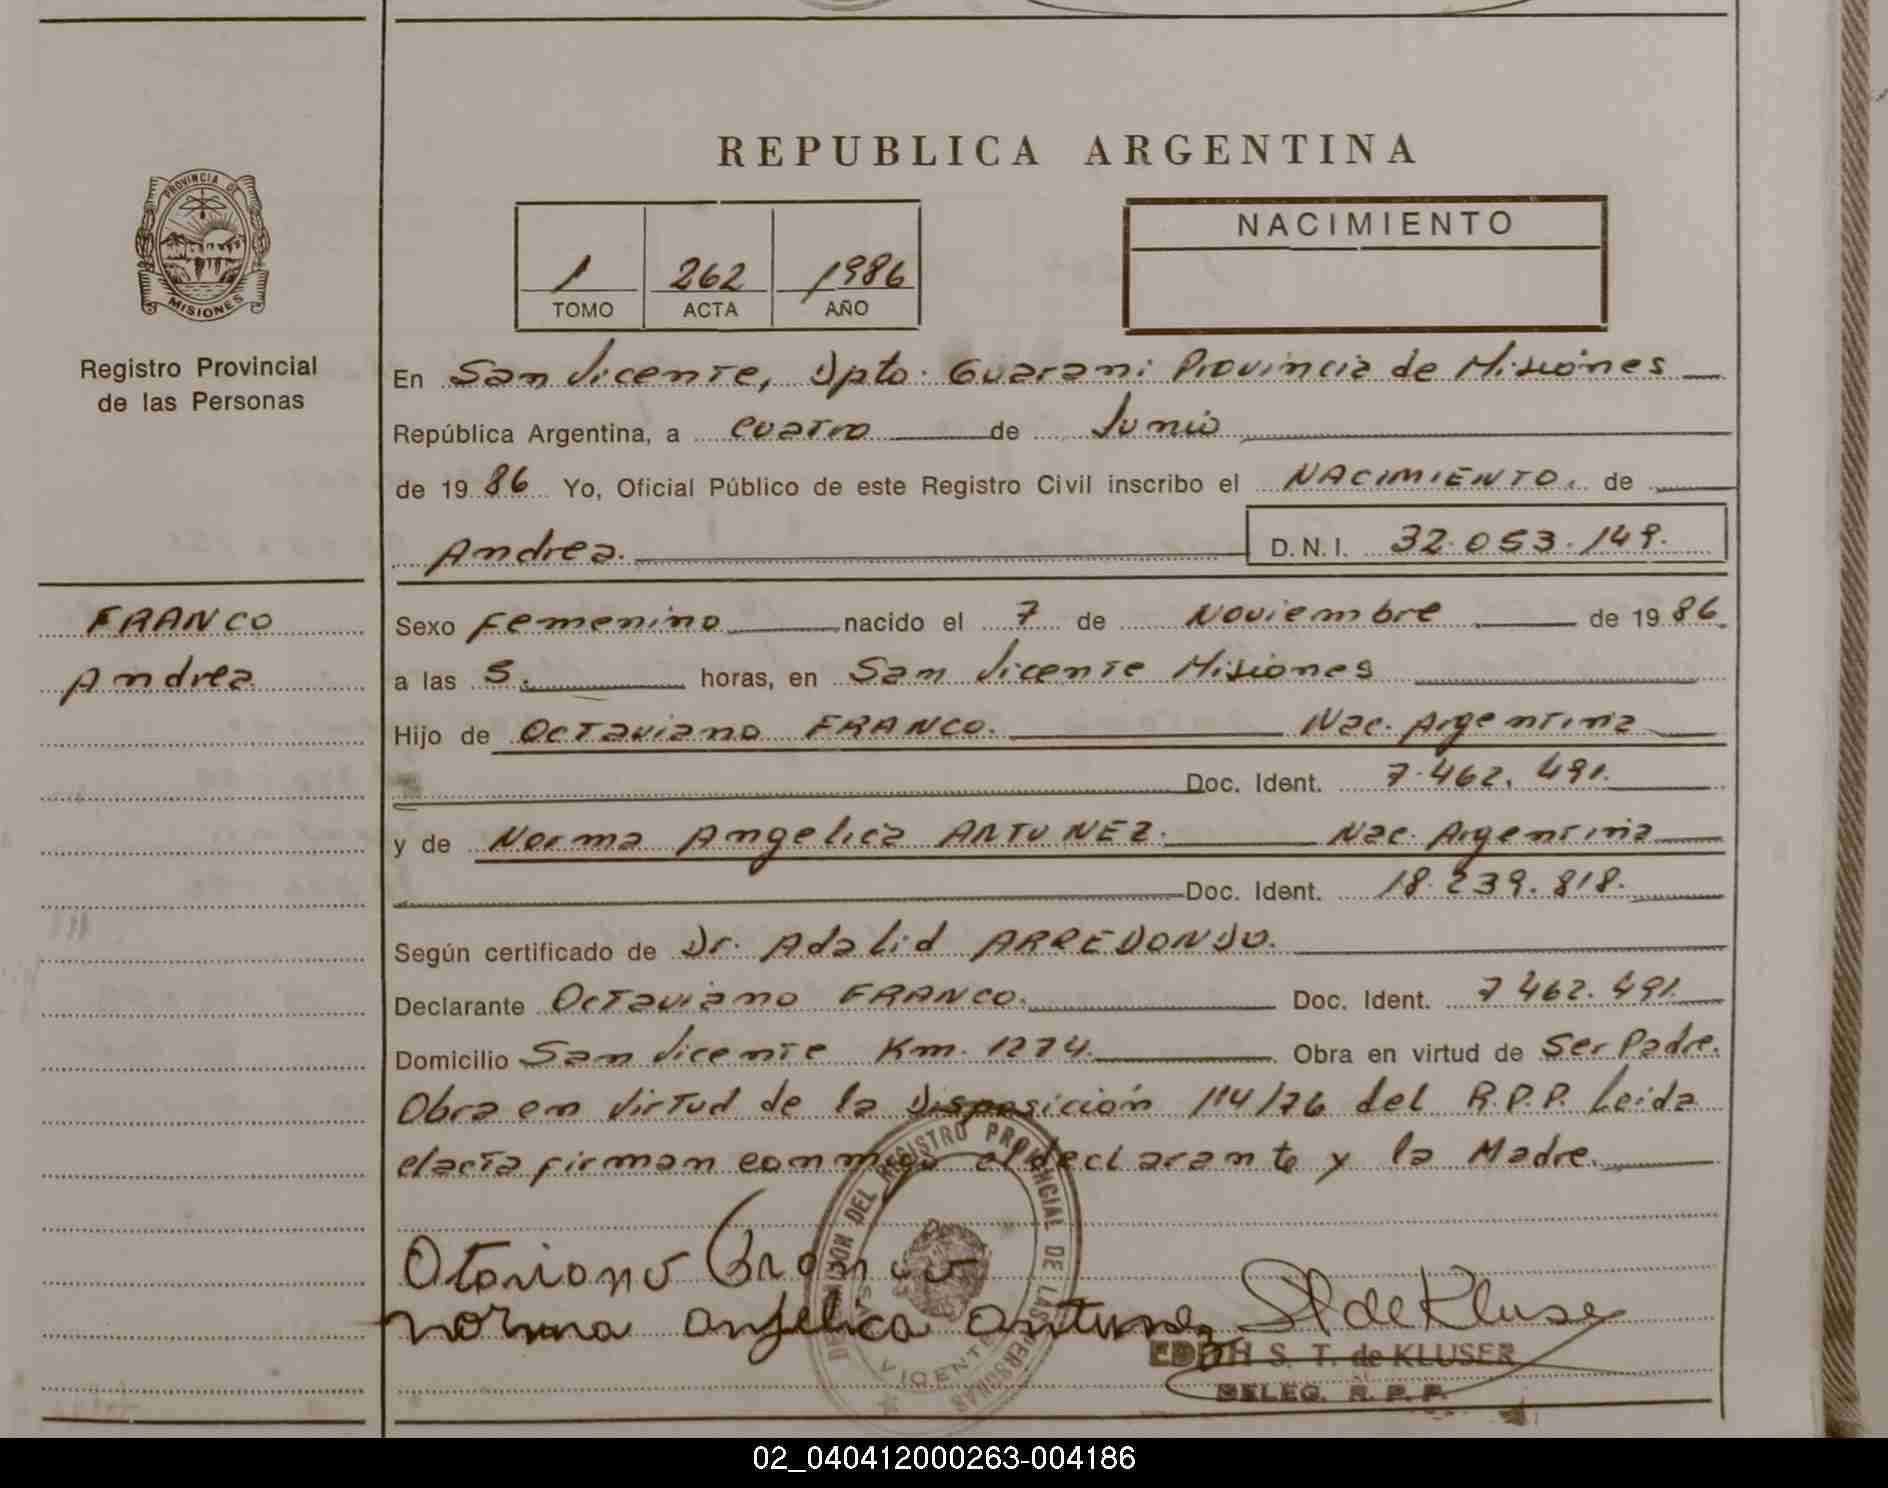 REPUBLICA ARGENTINA
PROVINCIA DE
MISIONES
Registro Provincial
de las Personas
NACIMIENTO
1 262 1986
TOMO ACTA AÑO
En San Vicente, Dpto. Guarani Provincia de Misiones
República Argentina, a cuatro de Junio
de 19 86 Yo, Oficial Público de este Registro Civil inscribo el NACIMIENTO. de
Andrea. D.N.I. 32.053.149.
FRANCO
Andrea
Sexo Femenino nacido el 7 de Noviembre de 19 86.
a las 5. horas, en San Vicente Misiones
Hijo de Octaviano FRANCO. Nac. Argentina
Doc. Ident. 7.462.491.
y de Norma Angelica ANTUNEZ. Nac. Argentina
Doc. Ident. 18.239.818.
Según certificado de Dr. Adalid ARREDONDO.
Declarante Octaviano FRANCO. Doc. Ident. 7 462.491.
Domicilio San Vicente Km. 1274. Obra en virtud de Ser Padre.
Obra en virtud de la Disposición 114/76 del R.P.P. Leida
elacta firman conmigo el declarante y la Madre.
DEL REGISTRO PROVINCIAL DE LAS PERSONAS
VICENTE
Otaviano Franco
norma anjelica antunez
St de Kluser
EDITH S. T. de KLUSER
DELEG. R. P. P.
02_040412000263-004186